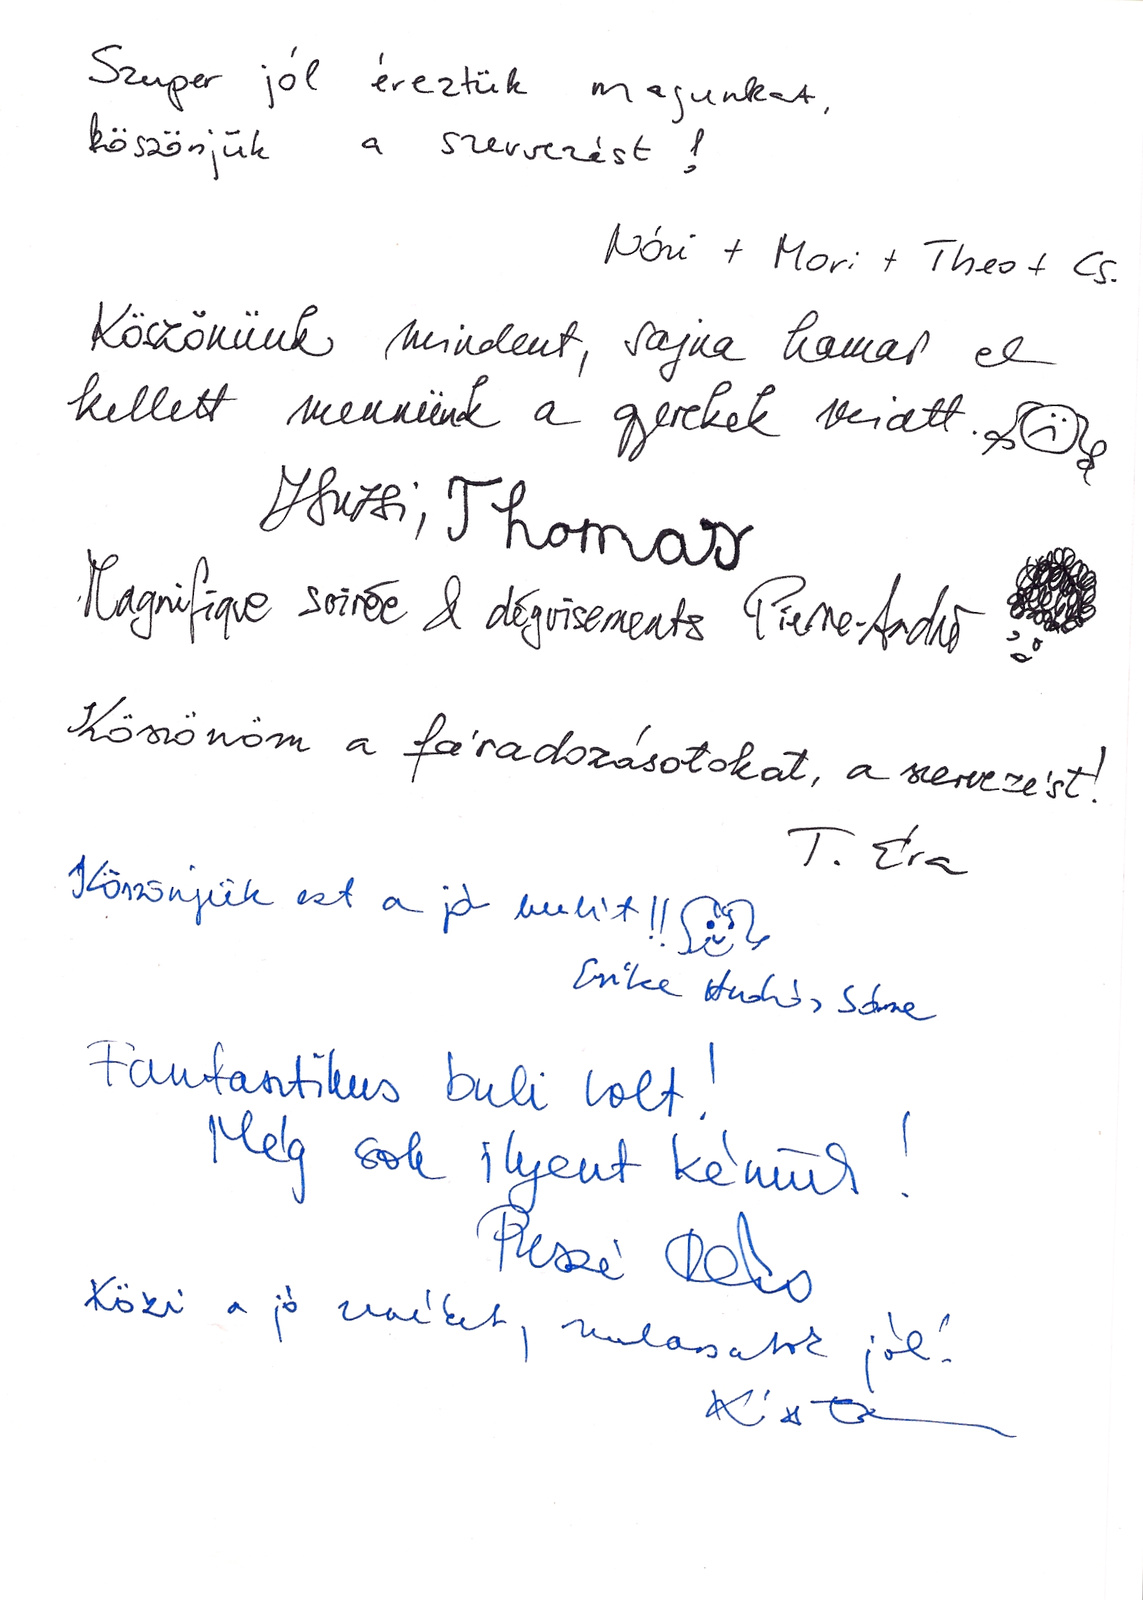 Szuper jól éreztük magunkat,
köszönjük a szervezést!
Nóri + Mori + Theo + Cs.
Köszönünk mindent, sajna hamar el
kellett mennünk a gyerekek miatt.
Zsuzsi, Thomas
Magnifique soirée & déguisements Pierre-André
Köszönöm a fáradozásotokat, a szervezést!
T. Éra
Köszönjük ezt a jó bulit!!
Erika András,
Fantasztikus buli volt!
Még sok ilyent kérünk!
Közi a jó zenéket, mulassatok jól!